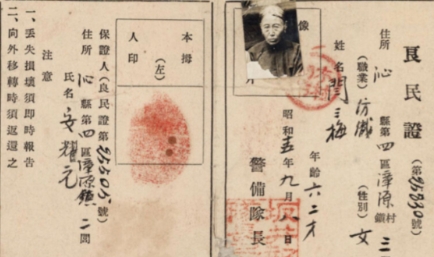 良民證
(第25230號)
住所 沁縣第四區漳源村
(職業) 紡織 (性別) 女
姓名 三梅
年齡 六二才
昭和 五年九月八日
警備隊長
像
本人
拇印
(左)
保證人 (良民證第 號)
住所 沁縣第四區漳源鎮二閭
氏名 安耀元
注意
一、丟失損壞須即時報告
二、向外移轉時須返還之